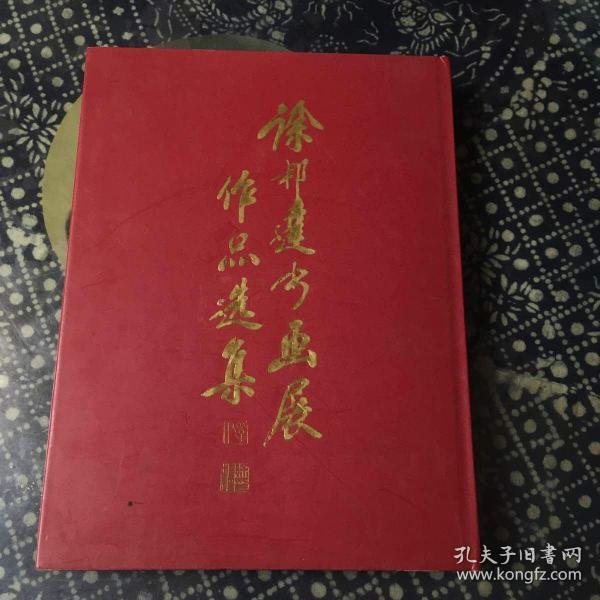 徐邦達书画展
作品选集
孔夫子旧書网
www.kongfz.com